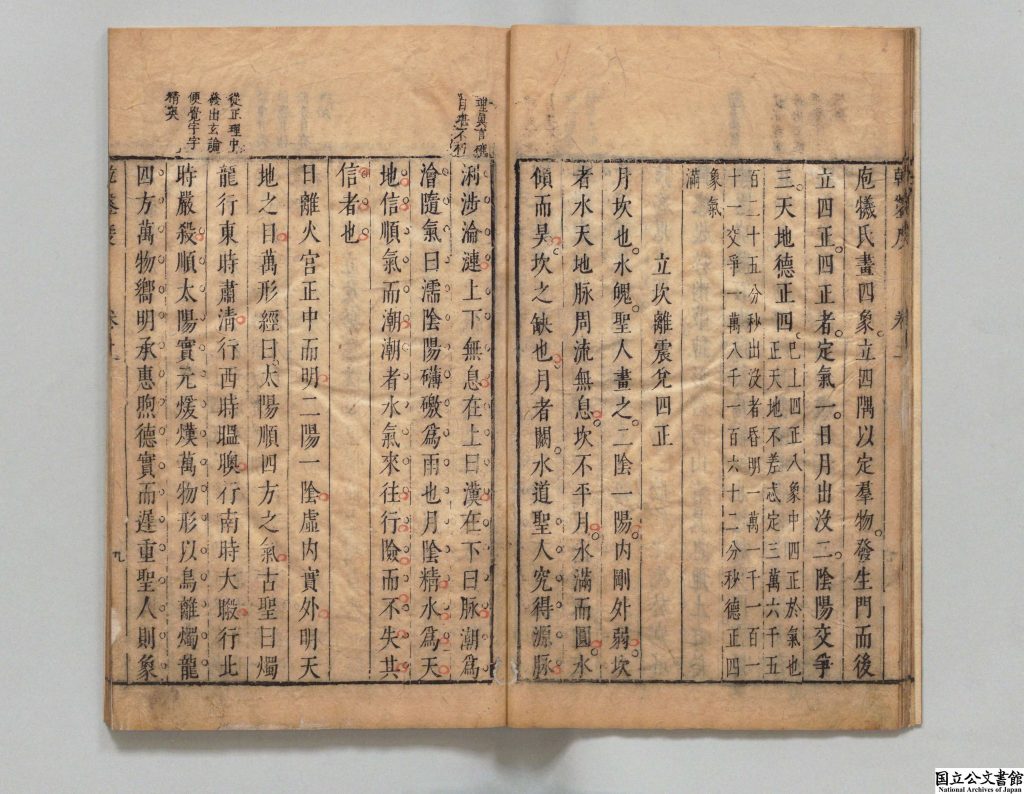 庖犧氏畫四象立四隅以定羣物發生門而後
立四正四正者定氣一日月出沒二陰陽交爭
三天地德正四
已上四正八象中四正於氣也
正天地不差忒定三萬六千五
百二十五分秒出沒者昏明一萬一千一百一
十一交爭一萬八千一百六十二分秒德正四
象氣
滿
立坎離震兌四正
月坎也水魄聖人畫之二陰一陽內剛外弱坎
者水天地脉周流無息坎不平月水滿而圓水
傾而昃坎之缺也月者闕水道聖人究得源脉
理奧言微
自堪不朽
泂涉淪漣上下無息在上曰漢在下曰脉潮爲
澮隨氣曰濡陰陽礴礉爲雨也月陰精水爲天
地信順氣而潮潮者水氣來往行險而不失其
信者也
日離火宮正中而明二陽一陰虛內實外明天
地之日萬形經曰太陽順四方之氣古聖曰燭
龍行東時肅清行西時䁔䁱行南時大䁔行北
時嚴殺順太陽實元煖熯萬物形以鳥離燭龍
四方萬物嚮明承惠煦德實而遲重聖人則象
從正理中
發出玄論
便覺字字
精奕
九
国立公文書館
National Archives of Japan